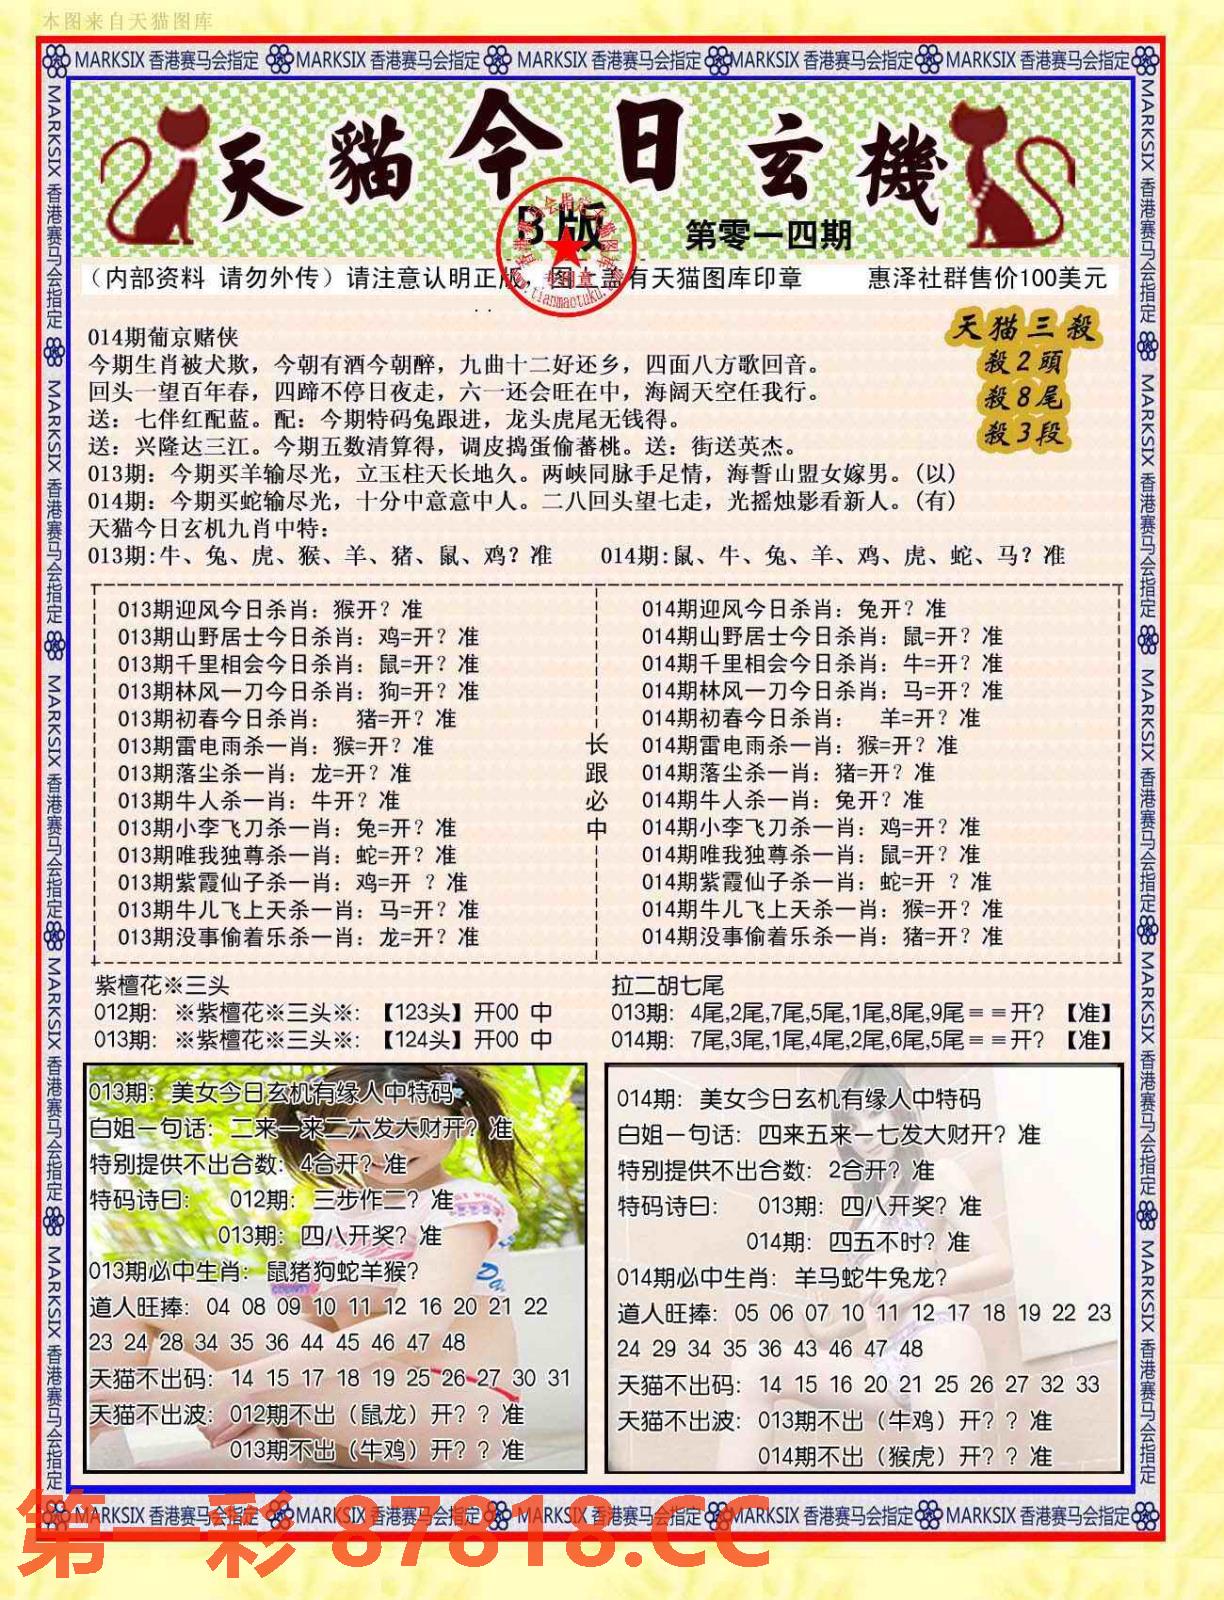 本图来自天猫图库
MARKSIX 香港赛马会指定 MARKSIX 香港赛马会指定 MARKSIX 香港赛马会指定 MARKSIX 香港赛马会指定 MARKSIX 香港赛马会指定
天貓今日玄機
B版
第零一四期
（内部资料 请勿外传）请注意认明正版，图上盖有天猫图库印章 惠泽社群售价100美元
天猫三殺
殺2頭
殺8尾
殺3段
014期葡京赌侠
今期生肖被犬欺，今朝有酒今朝醉，九曲十二好还乡，四面八方歌回音。
回头一望百年春，四蹄不停日夜走，六一还会旺在中，海阔天空任我行。
送：七伴红配蓝。配：今期特码兔跟进，龙头虎尾无钱得。
送：兴隆达三江。今期五数清算得，调皮捣蛋偷蕃桃。送：街送英杰。
013期：今期买羊输尽光，立玉柱天长地久。两峡同脉手足情，海誓山盟女嫁男。（以）
014期：今期买蛇输尽光，十分中意意中人。二八回头望七走，光摇烛影看新人。（有）
天猫今日玄机九肖中特：
013期:牛、兔、虎、猴、羊、猪、鼠、鸡？准 014期:鼠、牛、兔、羊、鸡、虎、蛇、马？准
013期迎风今日杀肖：猴开？准
013期山野居士今日杀肖：鸡=开？准
013期千里相会今日杀肖：鼠=开？准
013期林风一刀今日杀肖：狗=开？准
013期初春今日杀肖： 猪=开？准
013期雷电雨杀一肖：猴=开？准
013期落尘杀一肖：龙=开？准
013期牛人杀一肖：牛开？准
013期小李飞刀杀一肖：兔=开？准
013期唯我独尊杀一肖：蛇=开？准
013期紫霞仙子杀一肖：鸡=开 ？准
013期牛儿飞上天杀一肖：马=开？准
013期没事偷着乐杀一肖：龙=开？准
长跟必中
014期迎风今日杀肖：兔开？准
014期山野居士今日杀肖：鼠=开？准
014期千里相会今日杀肖：牛=开？准
014期林风一刀今日杀肖：马=开？准
014期初春今日杀肖： 羊=开？准
014期雷电雨杀一肖：猴=开？准
014期落尘杀一肖：猪=开？准
014期牛人杀一肖：兔开？准
014期小李飞刀杀一肖：鸡=开？准
014期唯我独尊杀一肖：鼠=开？准
014期紫霞仙子杀一肖：蛇=开 ？准
014期牛儿飞上天杀一肖：猴=开？准
014期没事偷着乐杀一肖：猪=开？准
紫檀花※三头
012期：※紫檀花※三头※：【123头】开00 中
013期：※紫檀花※三头※：【124头】开00 中
拉二胡七尾
013期：4尾,2尾,7尾,5尾,1尾,8尾,9尾＝＝开？【准】
014期：7尾,3尾,1尾,4尾,2尾,6尾,5尾＝＝开？【准】
013期：美女今日玄机有缘人中特码
白姐一句话：二来一来二六发大财开？准
特别提供不出合数：4合开？准
特码诗曰： 012期：三步作二？准
013期：四八开奖？准
013期必中生肖：鼠猪狗蛇羊猴？
道人旺捧：04 08 09 10 11 12 16 20 21 22
23 24 28 34 35 36 44 45 46 47 48
天猫不出码：14 15 17 18 19 25 26 27 30 31
天猫不出波：012期不出（鼠龙）开？？准
013期不出（牛鸡）开？？准
014期：美女今日玄机有缘人中特码
白姐一句话：四来五来一七发大财开？准
特别提供不出合数：2合开？准
特码诗曰： 013期：四八开奖？准
014期：四五不时？准
014期必中生肖：羊马蛇牛兔龙？
道人旺捧：05 06 07 10 11 12 17 18 19 22 23
24 29 34 35 36 43 46 47 48
天猫不出码：14 15 16 20 21 25 26 27 32 33
天猫不出波：013期不出（牛鸡）开？？准
014期不出（猴虎）开？？准
MARKSIX 香港赛马会指定 MARKSIX 香港赛马会指定 MARKSIX 香港赛马会指定 MARKSIX 香港赛马会指定 MARKSIX 香港赛马会指定
第一彩 87818.CC